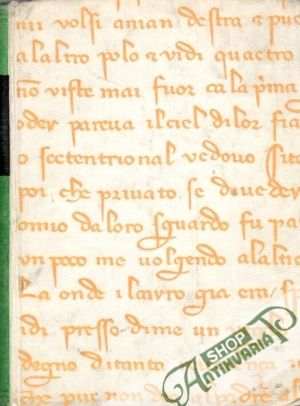 mi volsi aman destra e puo
alaltro polo e vidi quactro
nō viste mai fuor ca la pͥma
oder pareva il ciel di lor fia
o scetentrional vedovo sito
poi che privato se di veder
omio da loro sguardo fu pa
un poco me volgendo a lal
La onde il carro gia era s
idi presso di me un ve
degno di tanta
che pur non
SHOP
ANTIKVARIAT